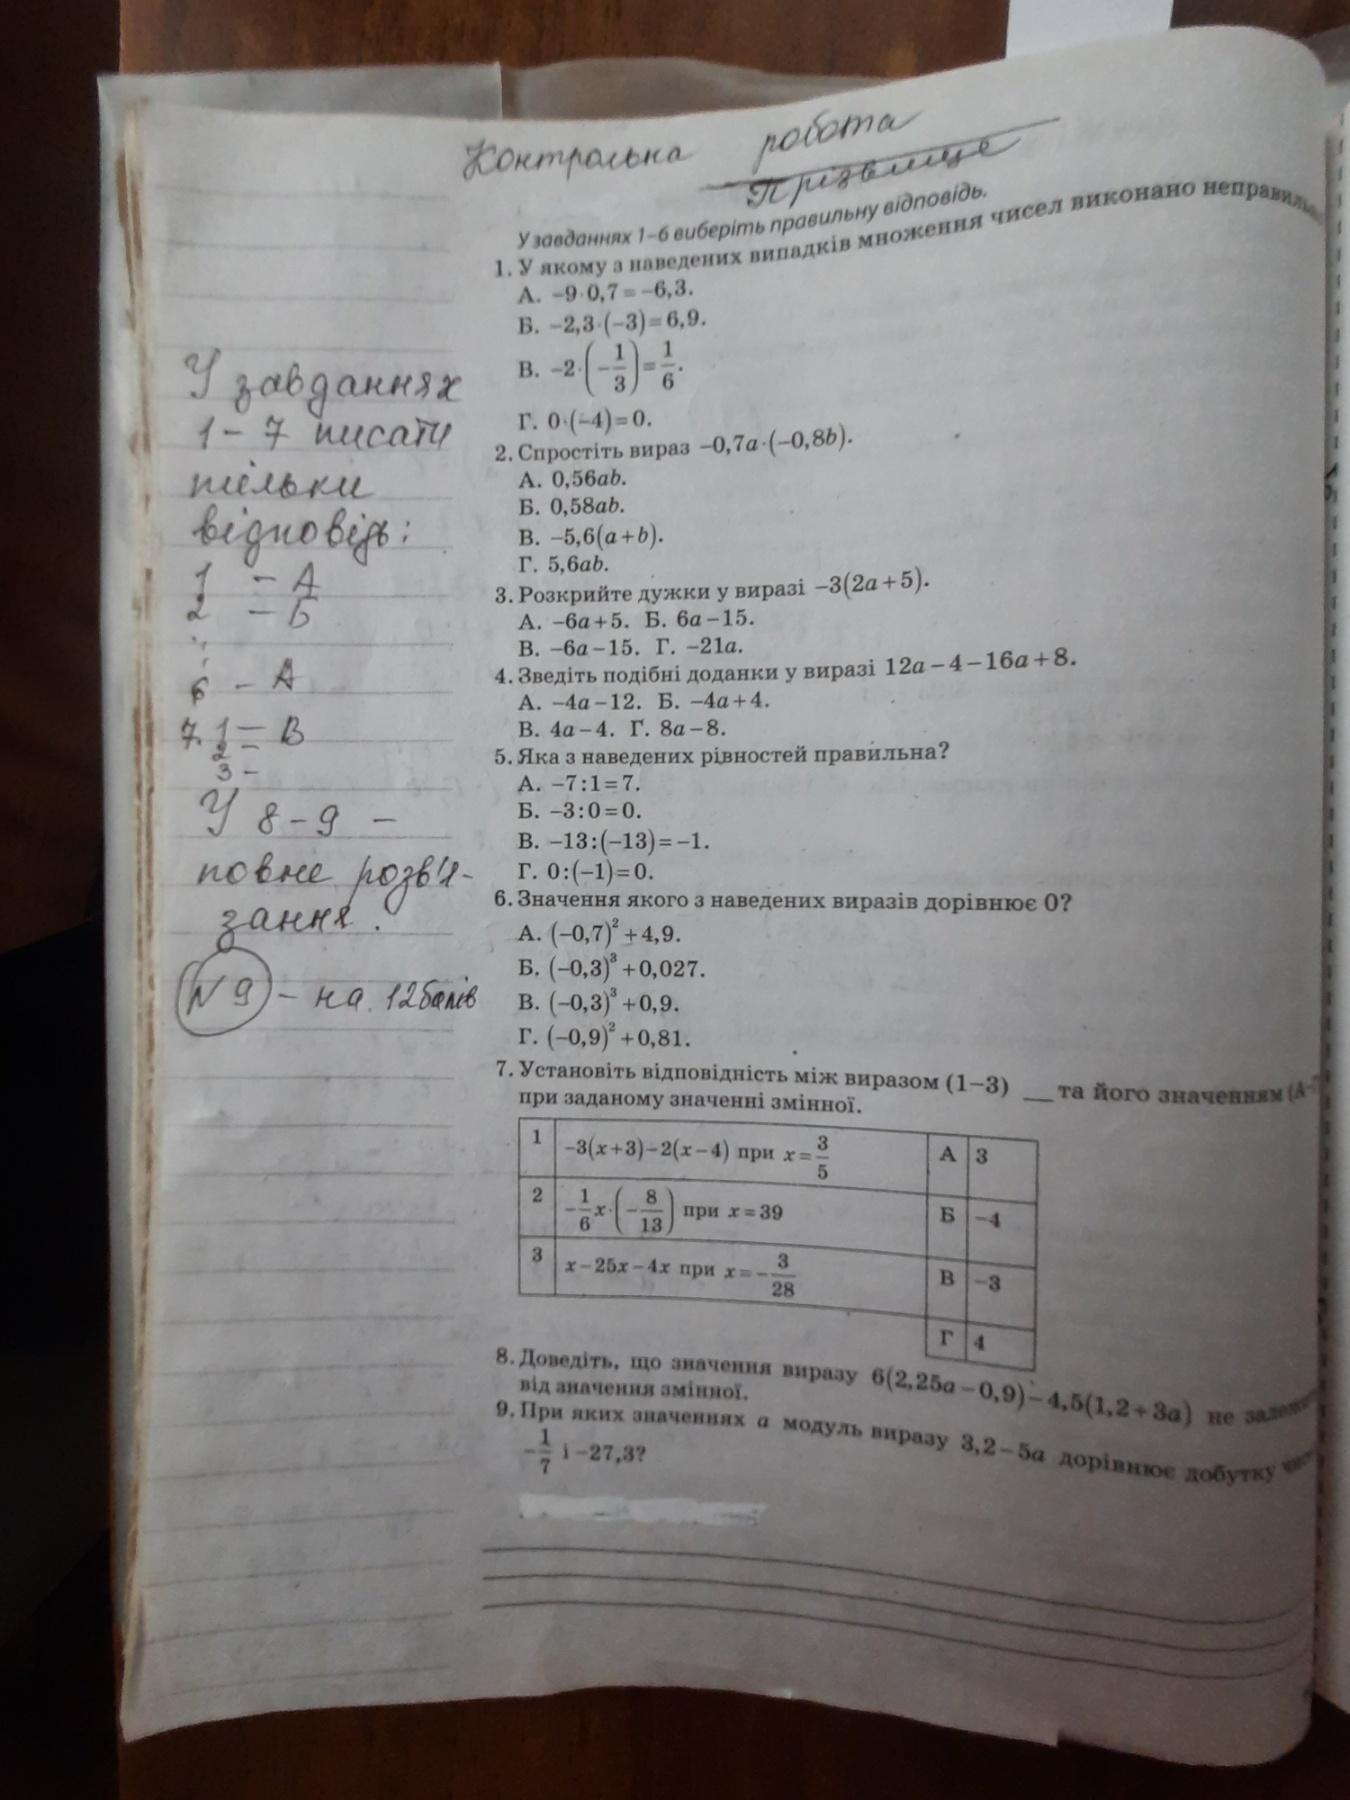 Контрольна робота
Прізвище
У завданнях 1–6 виберіть правильну відповідь.
1. У якому з наведених випадків множення чисел виконано неправильно
А. −9·0,7=−6,3.
Б. −2,3·(−3)=6,9.
В. −2·(−1/3)=1/6.
Г. 0·(−4)=0.
2. Спростіть вираз −0,7a·(−0,8b).
А. 0,56ab.
Б. 0,58ab.
В. −5,6(a+b).
Г. 5,6ab.
3. Розкрийте дужки у виразі −3(2a+5).
А. −6a+5. Б. 6a−15.
В. −6a−15. Г. −21a.
4. Зведіть подібні доданки у виразі 12a−4−16a+8.
А. −4a−12. Б. −4a+4.
В. 4a−4. Г. 8a−8.
5. Яка з наведених рівностей правильна?
А. −7:1=7.
Б. −3:0=0.
В. −13:(−13)=−1.
Г. 0:(−1)=0.
6. Значення якого з наведених виразів дорівнює 0?
А. (−0,7)²+4,9.
Б. (−0,3)³+0,027.
В. (−0,3)³+0,9.
Г. (−0,9)²+0,81.
7. Установіть відповідність між виразом (1–3) __ та його значенням (А–
при заданому значенні змінної.
1 −3(x+3)−2(x−4) при x=3/5 А 3
2 −1/6x·(−8/13) при x=39 Б −4
3 x−25x−4x при x=−3/28 В −3
Г 4
8. Доведіть, що значення виразу 6(2,25a−0,9)−4,5(1,2+3a) не
від значення змінної.
9. При яких значеннях a модуль виразу 3,2−5a дорівнює добутку
−1/7 і −27,3?
У завданнях
1–7 писати
тільки
відповідь:
1 – А
2 – Б
6 – А
7. 1 – В
2 –
3 –
У 8–9 –
повне розв'я-
зання.
№9 – на 12 балів